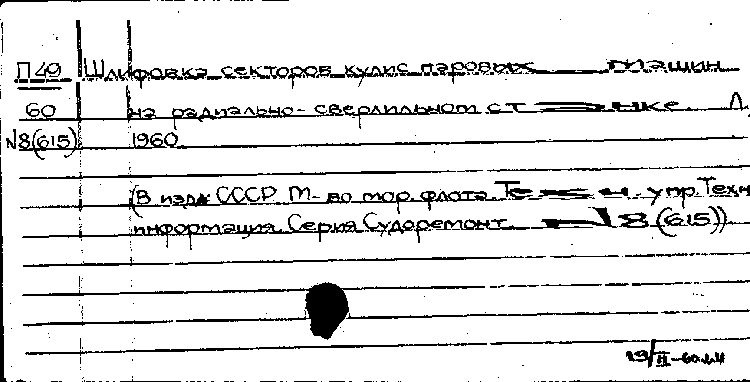 П49 Шлифовка секторов кулис паровых машин
60 на радиально-сверлильном станке. Л.,
№8(615) 1960.
(В изд. СССР. М-во мор. флота. Техн. упр. Техн
информация. Серия Судоремонт. №8 (615))